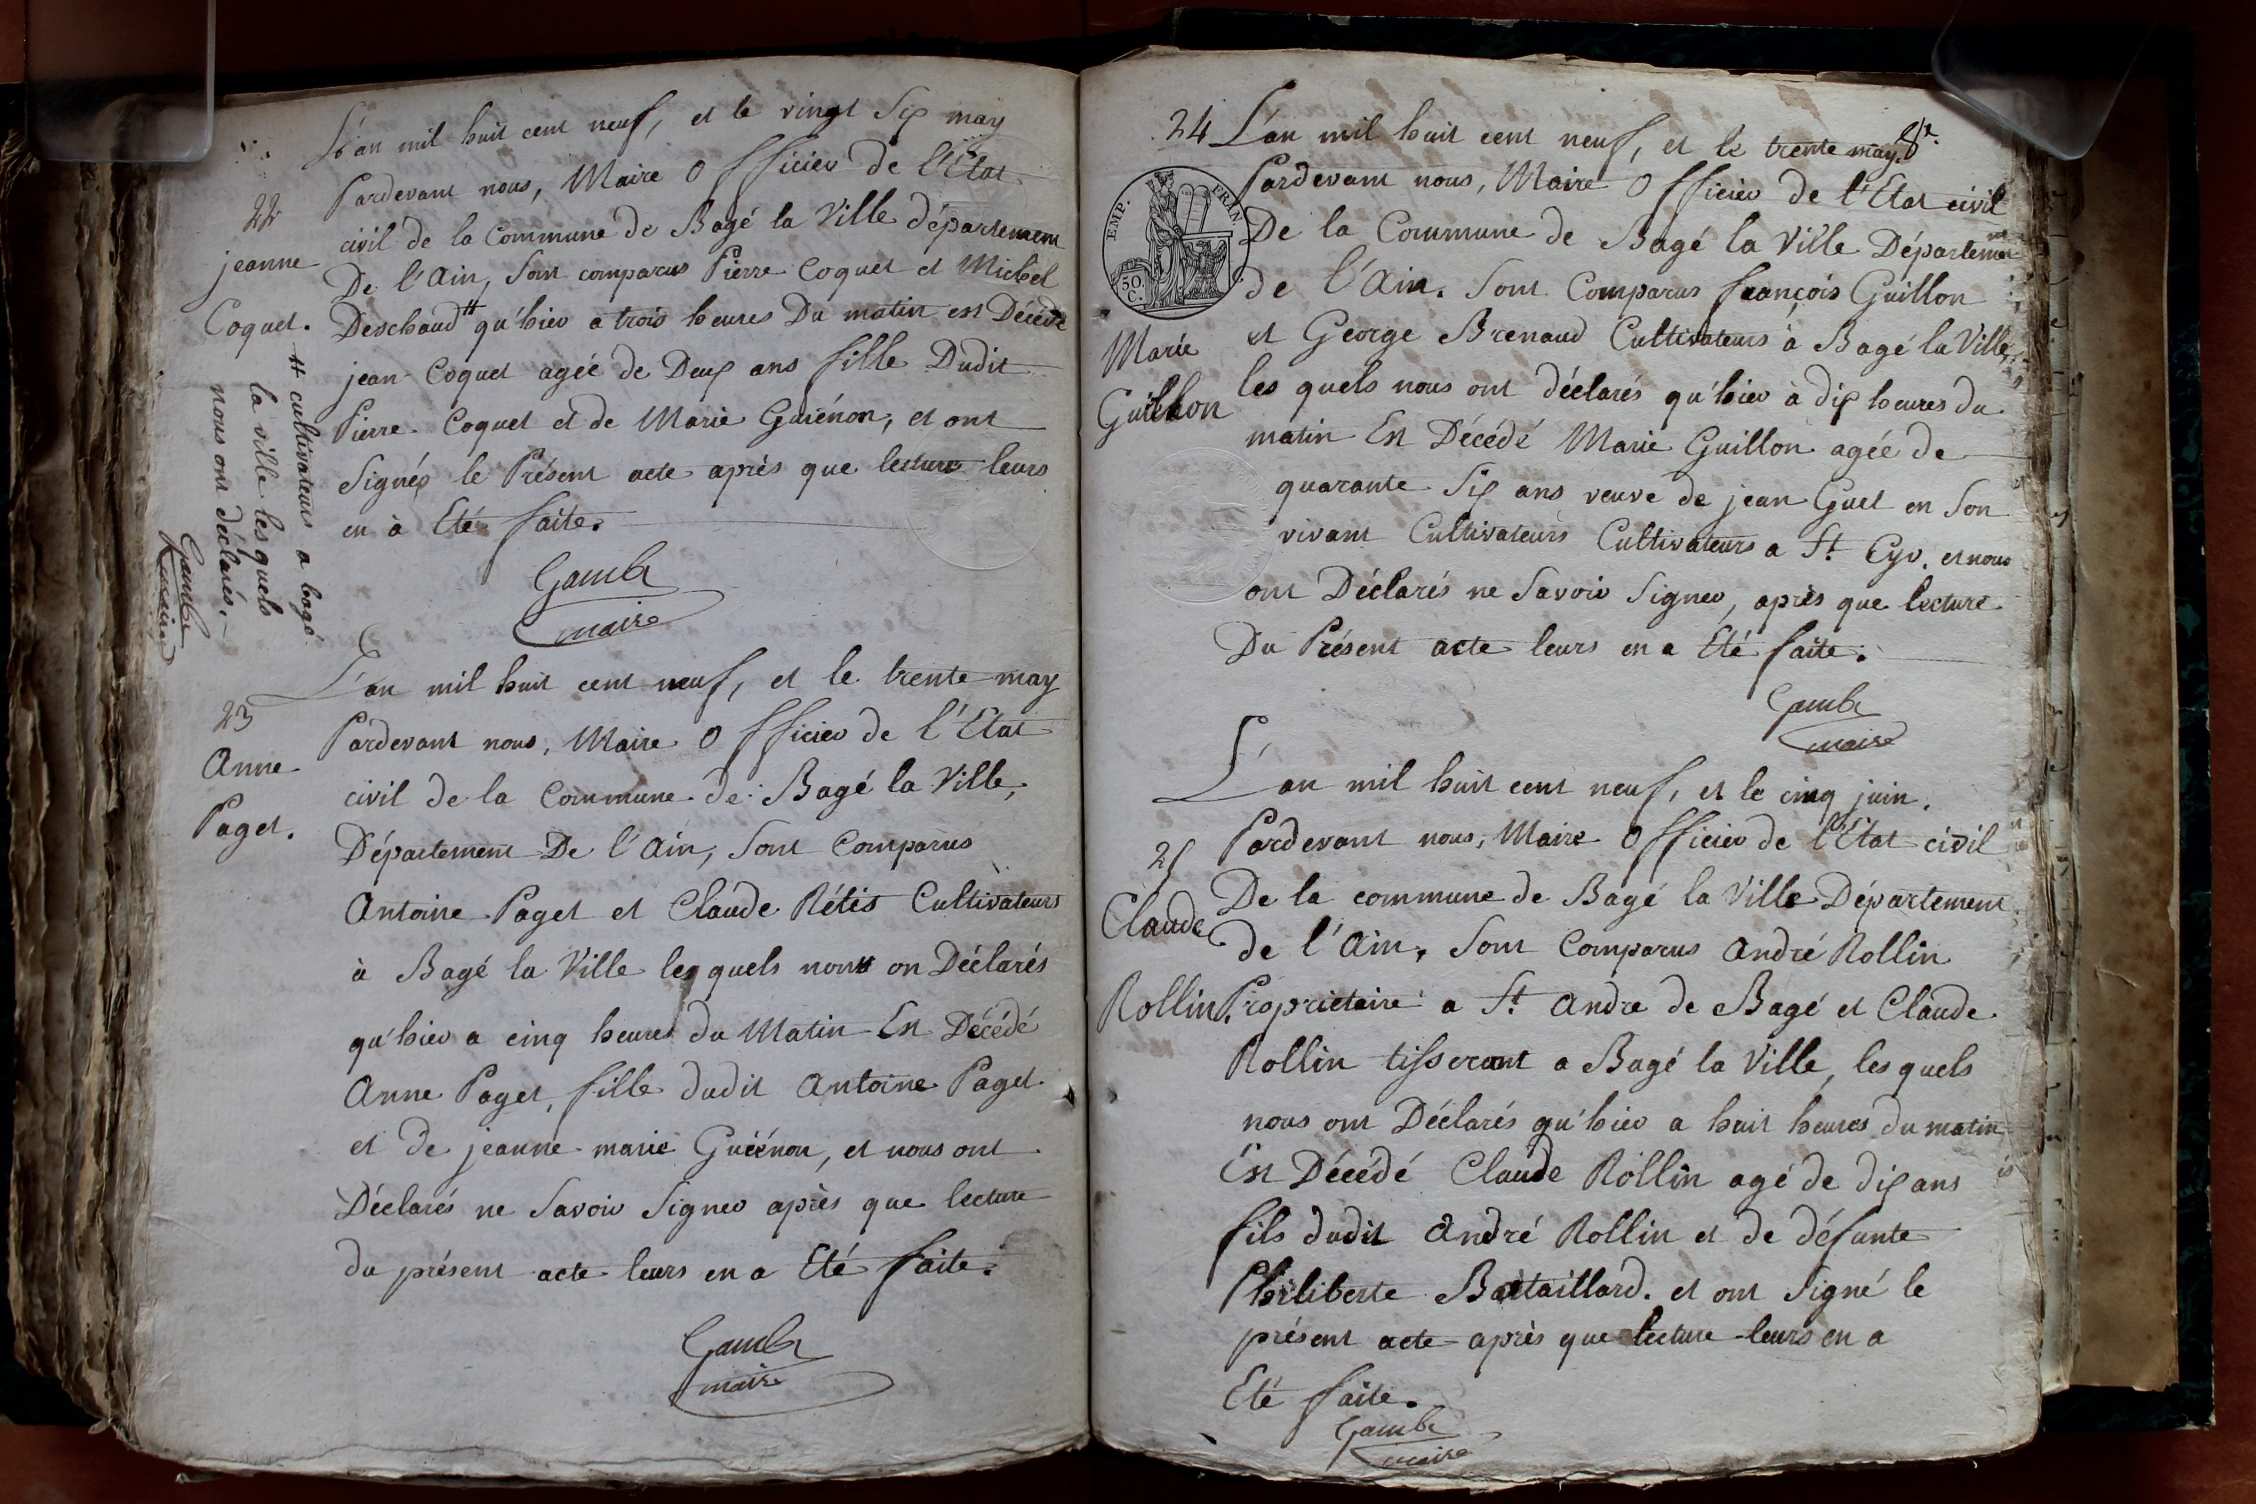 L'an mil huit cent neuf, et le vingt Six may
Pardevant nous, Maire Officier de l'Etat
22
civil de la Commune de Bagé la Ville département
jeanne
De l'Ain, Sont comparus Pierre Coquet et Michel
Coquet.
Deschaud # qu'hier a trois heures Du matin est Décédé
jean Coquet agée de Deux ans fille Dudit
Pierre Coquet et de Marie Guiénon, et ont
Signés le Présent acte après que lecture leurs
en a Eté faite.
# cultivateurs a bagé
la ville les quels
nous ont déclarés.
Gambe
maire
Gambe
maire
L'an mil huit cent neuf, et le trente may
23
Pardevant nous, Maire Officier de l'Etat
Anne
civil de la Commune de Bagé la Ville,
Paget.
Département De l'Ain, Sont Comparus
Antoine Paget et Claude Rétis Cultivateurs
à Bagé la Ville les quels nous on Déclarés
qu'hier a cinq heures du Matin Est Décédé
Anne Paget, fille dudit Antoine Paget
et de jeanne marie Guéénon, et nous ont
Déclarés ne Savoir Signer après que lecture
du présent acte leurs en a Eté faite.
Gambe
maire
24
L'an mil huit cent neuf, et le trente may
EMP. FRAN.
50 C.
Pardevant nous, Maire Officier de l'Etat civil
De la Commune de Bagé la Ville Département
de l'Ain. Sont Comparus françois Guillon
Marie
et George Brenaud Cultivateurs à Bagé la Ville,
Guillon
les quels nous ont déclarés qu'hier à dix heures du
matin Est Décédé Marie Guillon agée de
quarante Six ans veuve de jean Guet en Son
vivant Cultivateurs Cultivateurs a St. Cyr. et nous
ont Déclarés ne Savoir Signer, après que lecture
Du Présent acte leurs en a Eté faite.
Gambe
maire
L'an mil huit cent neuf, et le cinq juin.
25
Pardevant nous, Maire Officier de l'Etat civil
De la commune de Bagé la Ville Département
Claude
de l'Ain. Sont Comparus André Rollin
Rollin.
Proprietaire a St. Andre de Bagé et Claude
Rollin tisserant a Bagé la Ville, les quels
nous ont Déclarés qu'hier a huit heures du matin
Est Décédé Claude Rollin agé de dix ans
fils dudit André Rollin et de défunte
Philiberte Bataillard. et ont Signé le
présent acte après que lecture leurs en a
Eté faite.
Gambe
maire